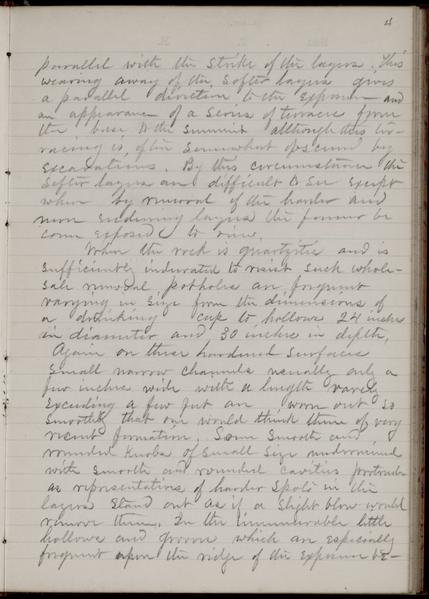 4
parallel with the strike of the layers. This
wearing away of the softer layers gives
a parallel direction to the exposure and
an appearance of a series of terraces from
the base to the summit although this ter-
racing is often somewhat obscured by
excavations. By this circumstance the
softer layers are difficult to see except
when by removal of the harder and
more enduring layers the former be
come exposed to view.
When the rock is quartzitic and is
sufficiently indurated to resist such whole-
sale removal potholes are frequent
varying in size from the dimensions of
a drinking cup to hollows 24 inches
in diameter and 30 inches in depth.
Again on these hardened surfaces
small narrow channels usually only a
few inches wide with a length rarely
exceeding a few feet are worn out so
smoothly that one would think them of very
recent formation. Some smooth and
rounded knobs of small size undermined
with smooth and rounded cavities protrude
as representatives of harder spots in the
layers stand out as if a slight blow would
remove them. In the innumerable little
hollows and grooves which are especially
frequent upon the ridge of the exposure be-